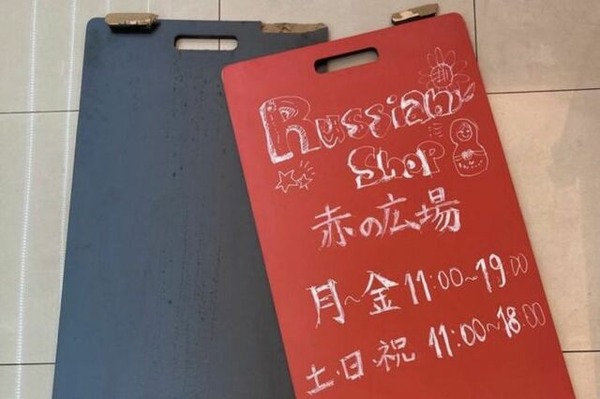 Russian
Shop
赤の広場
月~金 11:00~19:00
土・日・祝 11:00~18:00